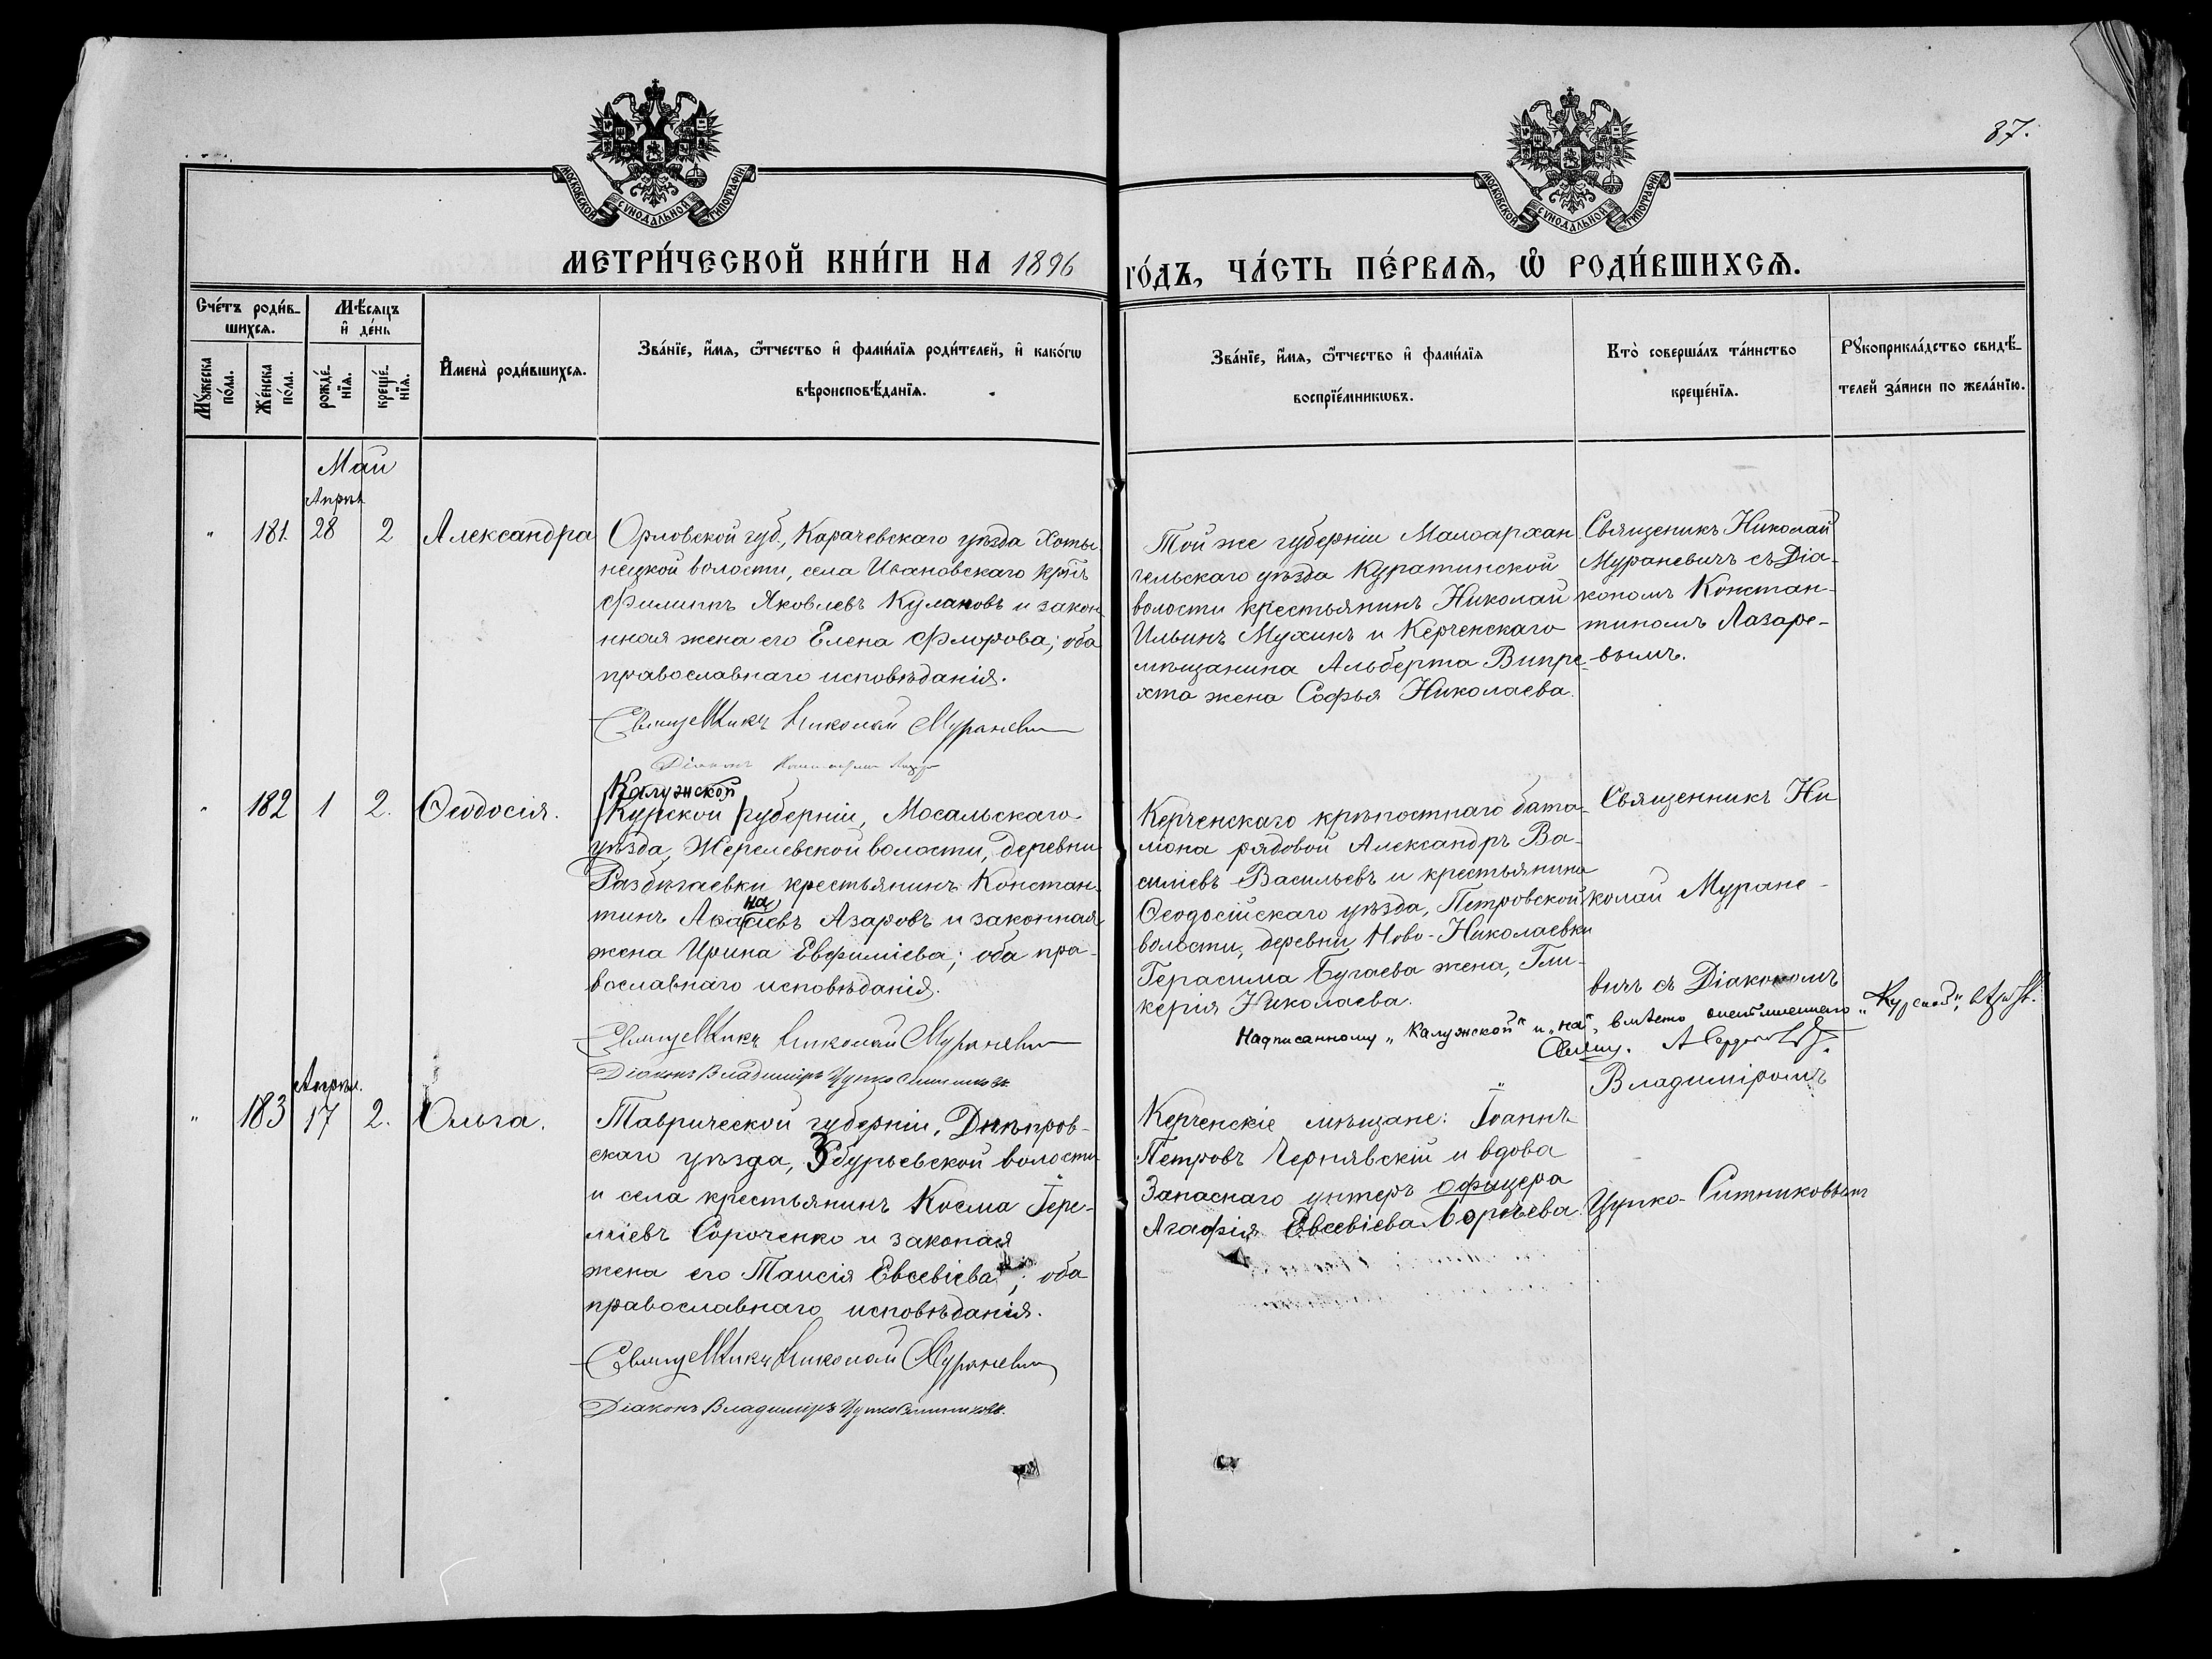 87.
МОСКОВСКОЙ СѴНОДАЛЬНОЙ ТИПОГРАФІИ
МОСКОВСКОЙ СѴНОДАЛЬНОЙ ТИПОГРАФІИ
МЕТРИ́ЧЕСКОЙ КНИ́ГИ НА 1896
ГО́ДЪ, ЧА́СТЬ ПЕ́РВАѦ, Ѡ҆ РОДИ́ВШИХСѦ.
Сче́тъ роди́в-
шихсѧ.
Мꙋ́жеска
по́ла.
Же́нска
по́ла.
Мѣ́сѧцъ
и҆ де́нь
рожде́-
нїѧ.
креще́-
нїѧ.
И҆мена̀ роди́вшихсѧ.
Зва́нїе, и҆́мѧ, ѻ҆́тчество и҆ фами́лїѧ роди́телей, и҆ како́гѡ
вѣроисповѣ́данїѧ.
Зва́нїе, и҆́мѧ, ѻ҆́тчество и҆ фами́лїѧ
воспрїе́мникѡвъ.
Кто̀ соверша́лъ та́инство
креще́нїѧ.
Рꙋкоприкла́дство свидѣ́-
телей за́писи по жела́нїю.
Май
Апрѣл
" 181. 28 2 Александра
Орловской губ., Карачевскаго уѣзда Хоты-
нецкой волости, села Ивановскаго крнъ
Филиппъ Яковлевъ Кулаковъ и закон-
нная жена его Елена Флорова; оба
православнаго исповѣданія.
Священникъ Николай Мураневи
Діаконъ
Той же губерніи Малоархан
гельскаго уѣзда Куратинской
волости крестьянинъ Николай
Ильинъ Мухинъ и Керченскаго
мѣщанина Альберта Випре-
хта жена Софья Николаева.
Священикъ Николай
Мураневичъ съ Діа-
кономъ Констан-
тиномъ Лазаре-
вымъ.
" 182 1 2. Ѳеодосія.
Калужской
Курской губерніи, Мосальскаго
уѣзда, Жерелевской волости, деревни
Разбѣгаевки крестьянинъ Констан-
на
тинъ Ака сіевъ Азаровъ и законная
жена Ирина Евфиміева; оба пра-
вославнаго исповѣданія.
Священникъ Николай Мураневи
Діаконъ Владиміръ Цупко Ситниковъ.
Керченскаго крѣпостнаго бата-
ліона рядовой Александръ Ва-
силіевъ Васильевъ и крестьянина
Ѳеодосійскаго уѣзда, Петровской
волости, деревни Ново-Николаевки
Герасима Бугаева жена, Гли-
керія Николаева.
Священникъ Ни
колай Муране-
вичъ съ Діакономъ
Надписанному „Калужской" и „на", вмѣсто „Курской",
Свящ.
Владиміромъ
Цупко-Ситниковымъ
Апрѣл.
" 183 17 2. Ольга.
Таврической губерніи, Днѣпров-
скаго уѣзда, Збурьевской волости
и села крестьянинъ Косма Іере-
міевъ Сороченко и законая
жена его Таисія Евсевіева; оба
православнаго исповѣданія.
Священникъ Николай Мураневи
Діаконъ Владиміръ Цупко Ситниковъ.
Керченскіе мѣщане: Іоаннъ
Петровъ Чернявскій и вдова
Запаснаго унтеръ офицера
Агафія Евсевіева